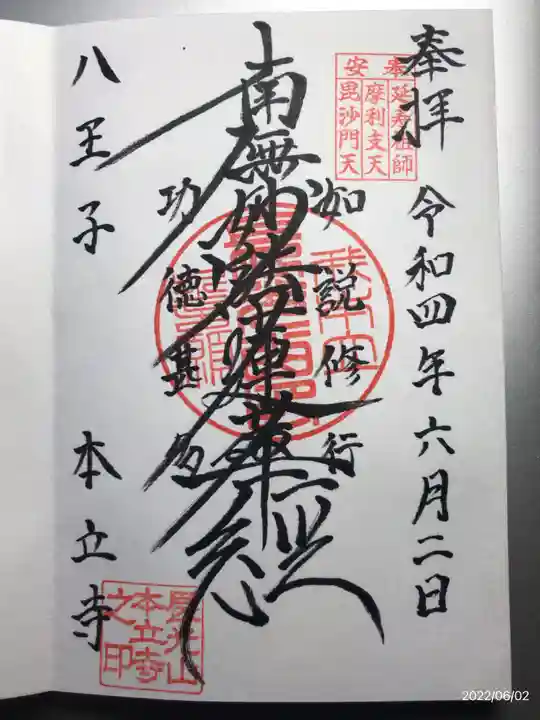 奉拝
令和四年六月二日
奉安
延寿祖師
摩利支天
毘沙門天
如説修行
南無妙法蓮華経
功徳甚多
八王子 本立寺
本立寺
之印
2022/06/02